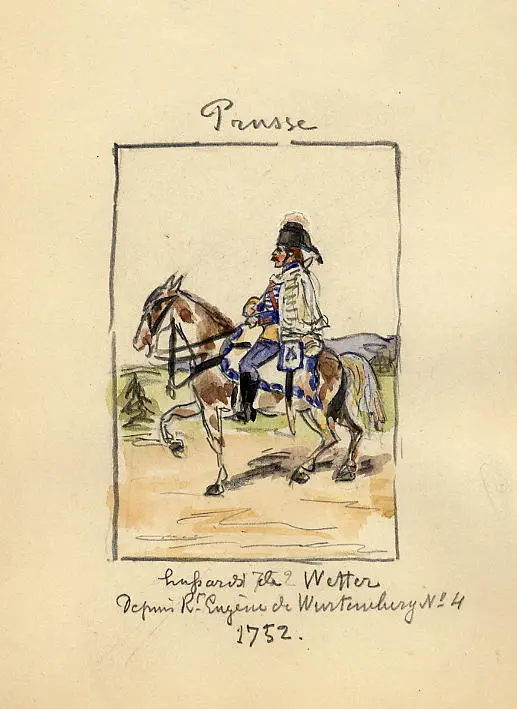 Prusse
hussards de Wetter
Depuis Rt Eugène de Wurtemburg No 4
1752.